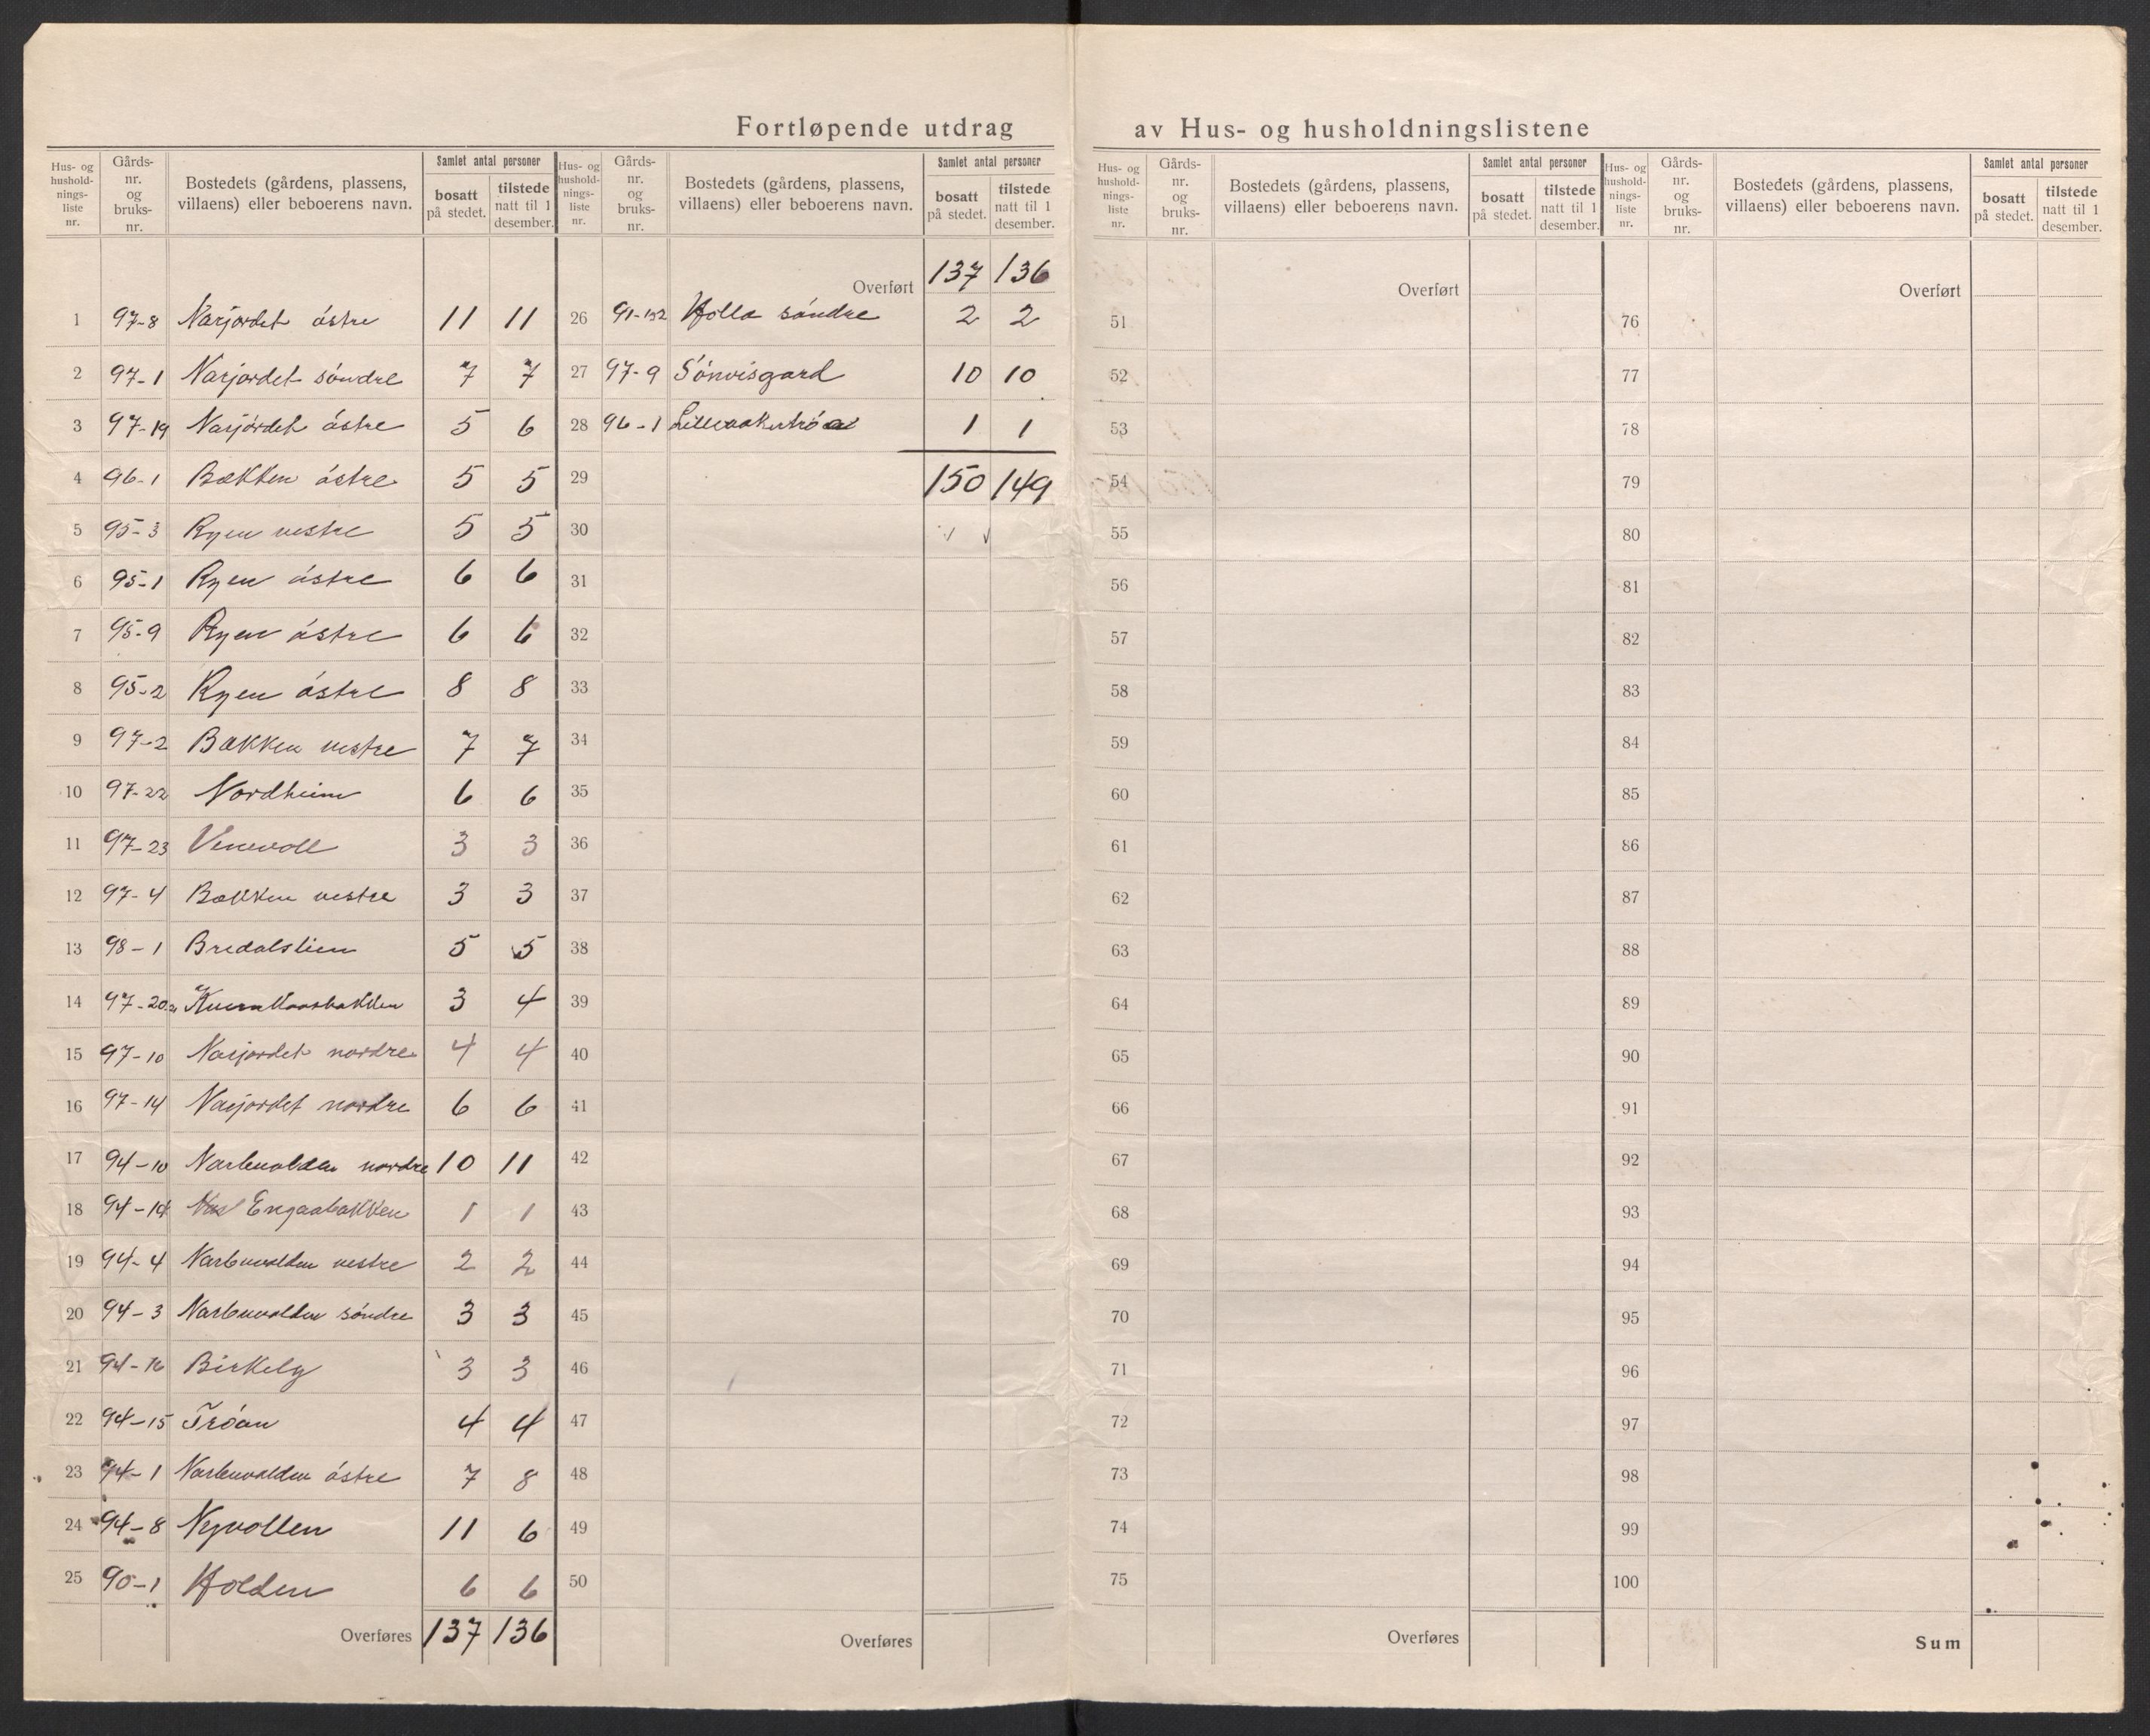 Fortløpende utdrag av Hus- og husholdningslistene
Hus- og husholdnings-liste nr. | Gårds-nr. og bruks-nr. | Bostedets (gårdens, plassens, villaens) eller beboerens navn. | Samlet antal personer: bosatt på stedet. | tilstede natt til 1 desember.
1 97-8 Narjordet østre 11 11
2 97-1 Narjordet søndre 7 7
3 97-19 Narjordet østre 5 6
4 96-1 Bækken østre 5 5
5 95-3 Ryen vestre 5 5
6 95-1 Ryen østre 6 6
7 95-9 Ryen østre 6 6
8 95-2 Ryen østre 8 8
9 97-2 Bakken vestre 7 7
10 97-22 Nordheim 6 6
11 97-23 Venevoll 3 3
12 97-4 Bakken vestre 3 3
13 98-1 Bredalslien 5 5
14 97-20 3 4
15 97-10 Narjordet nordre 4 4
16 97-14 Narjordet nordre 6 6
17 94-10 Narbuvolden nordre 10 11
18 94-14 Engaabakken 1 1
19 94-4 Narbuvolden vestre 2 2
20 94-3 Narbuvolden søndre 3 3
21 94-16 Birkely 3 3
22 94-15 Trøan 4 4
23 94-1 Narbuvolden østre 7 8
24 94-8 Nyvollen 11 6
25 90-1 Holden 6 6
Overføres 137 136
Hus- og husholdnings-liste nr. | Gårds-nr. og bruks-nr. | Bostedets (gårdens, plassens, villaens) eller beboerens navn. | Samlet antal personer: bosatt på stedet. | tilstede natt til 1 desember.
Overført 137 136
26 Holla søndre 2 2
27 97-9 Sønvisgard 10 10
28 96-1 1 1
29 150 149
30
31
32
33
34
35
36
37
38
39
40
41
42
43
44
45
46
47
48
49
50
Overføres
Hus- og husholdnings-liste nr. | Gårds-nr. og bruks-nr. | Bostedets (gårdens, plassens, villaens) eller beboerens navn. | Samlet antal personer: bosatt på stedet. | tilstede natt til 1 desember.
Overført
51
52
53
54
55
56
57
58
59
60
61
62
63
64
65
66
67
68
69
70
71
72
73
74
75
Overføres
Hus- og husholdnings-liste nr. | Gårds-nr. og bruks-nr. | Bostedets (gårdens, plassens, villaens) eller beboerens navn. | Samlet antal personer: bosatt på stedet. | tilstede natt til 1 desember.
Overført
76
77
78
79
80
81
82
83
84
85
86
87
88
89
90
91
92
93
94
95
96
97
98
99
100
Sum